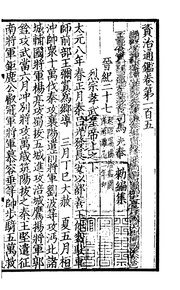 資治通鑑卷第一百五
司馬光奉 勅編集
晉紀二十七
烈宗孝武皇帝上之下
太元八年春正月秦呂光發長安以鄯善王休密馱車
師前部王彌窴爲鄉導 三月丁巳大赦 夏五月桓
冲帥衆十萬伐秦攻襄陽遣前將軍劉波等攻沔北諸
城輔國將軍楊亮攻蜀拔五城進攻涪城鷹揚將軍郭
銓攻武當六月冲別將攻萬歲筑陽拔之秦王堅遣征
南將軍鉅鹿公叡冠軍將軍慕容垂等帥步騎五萬救